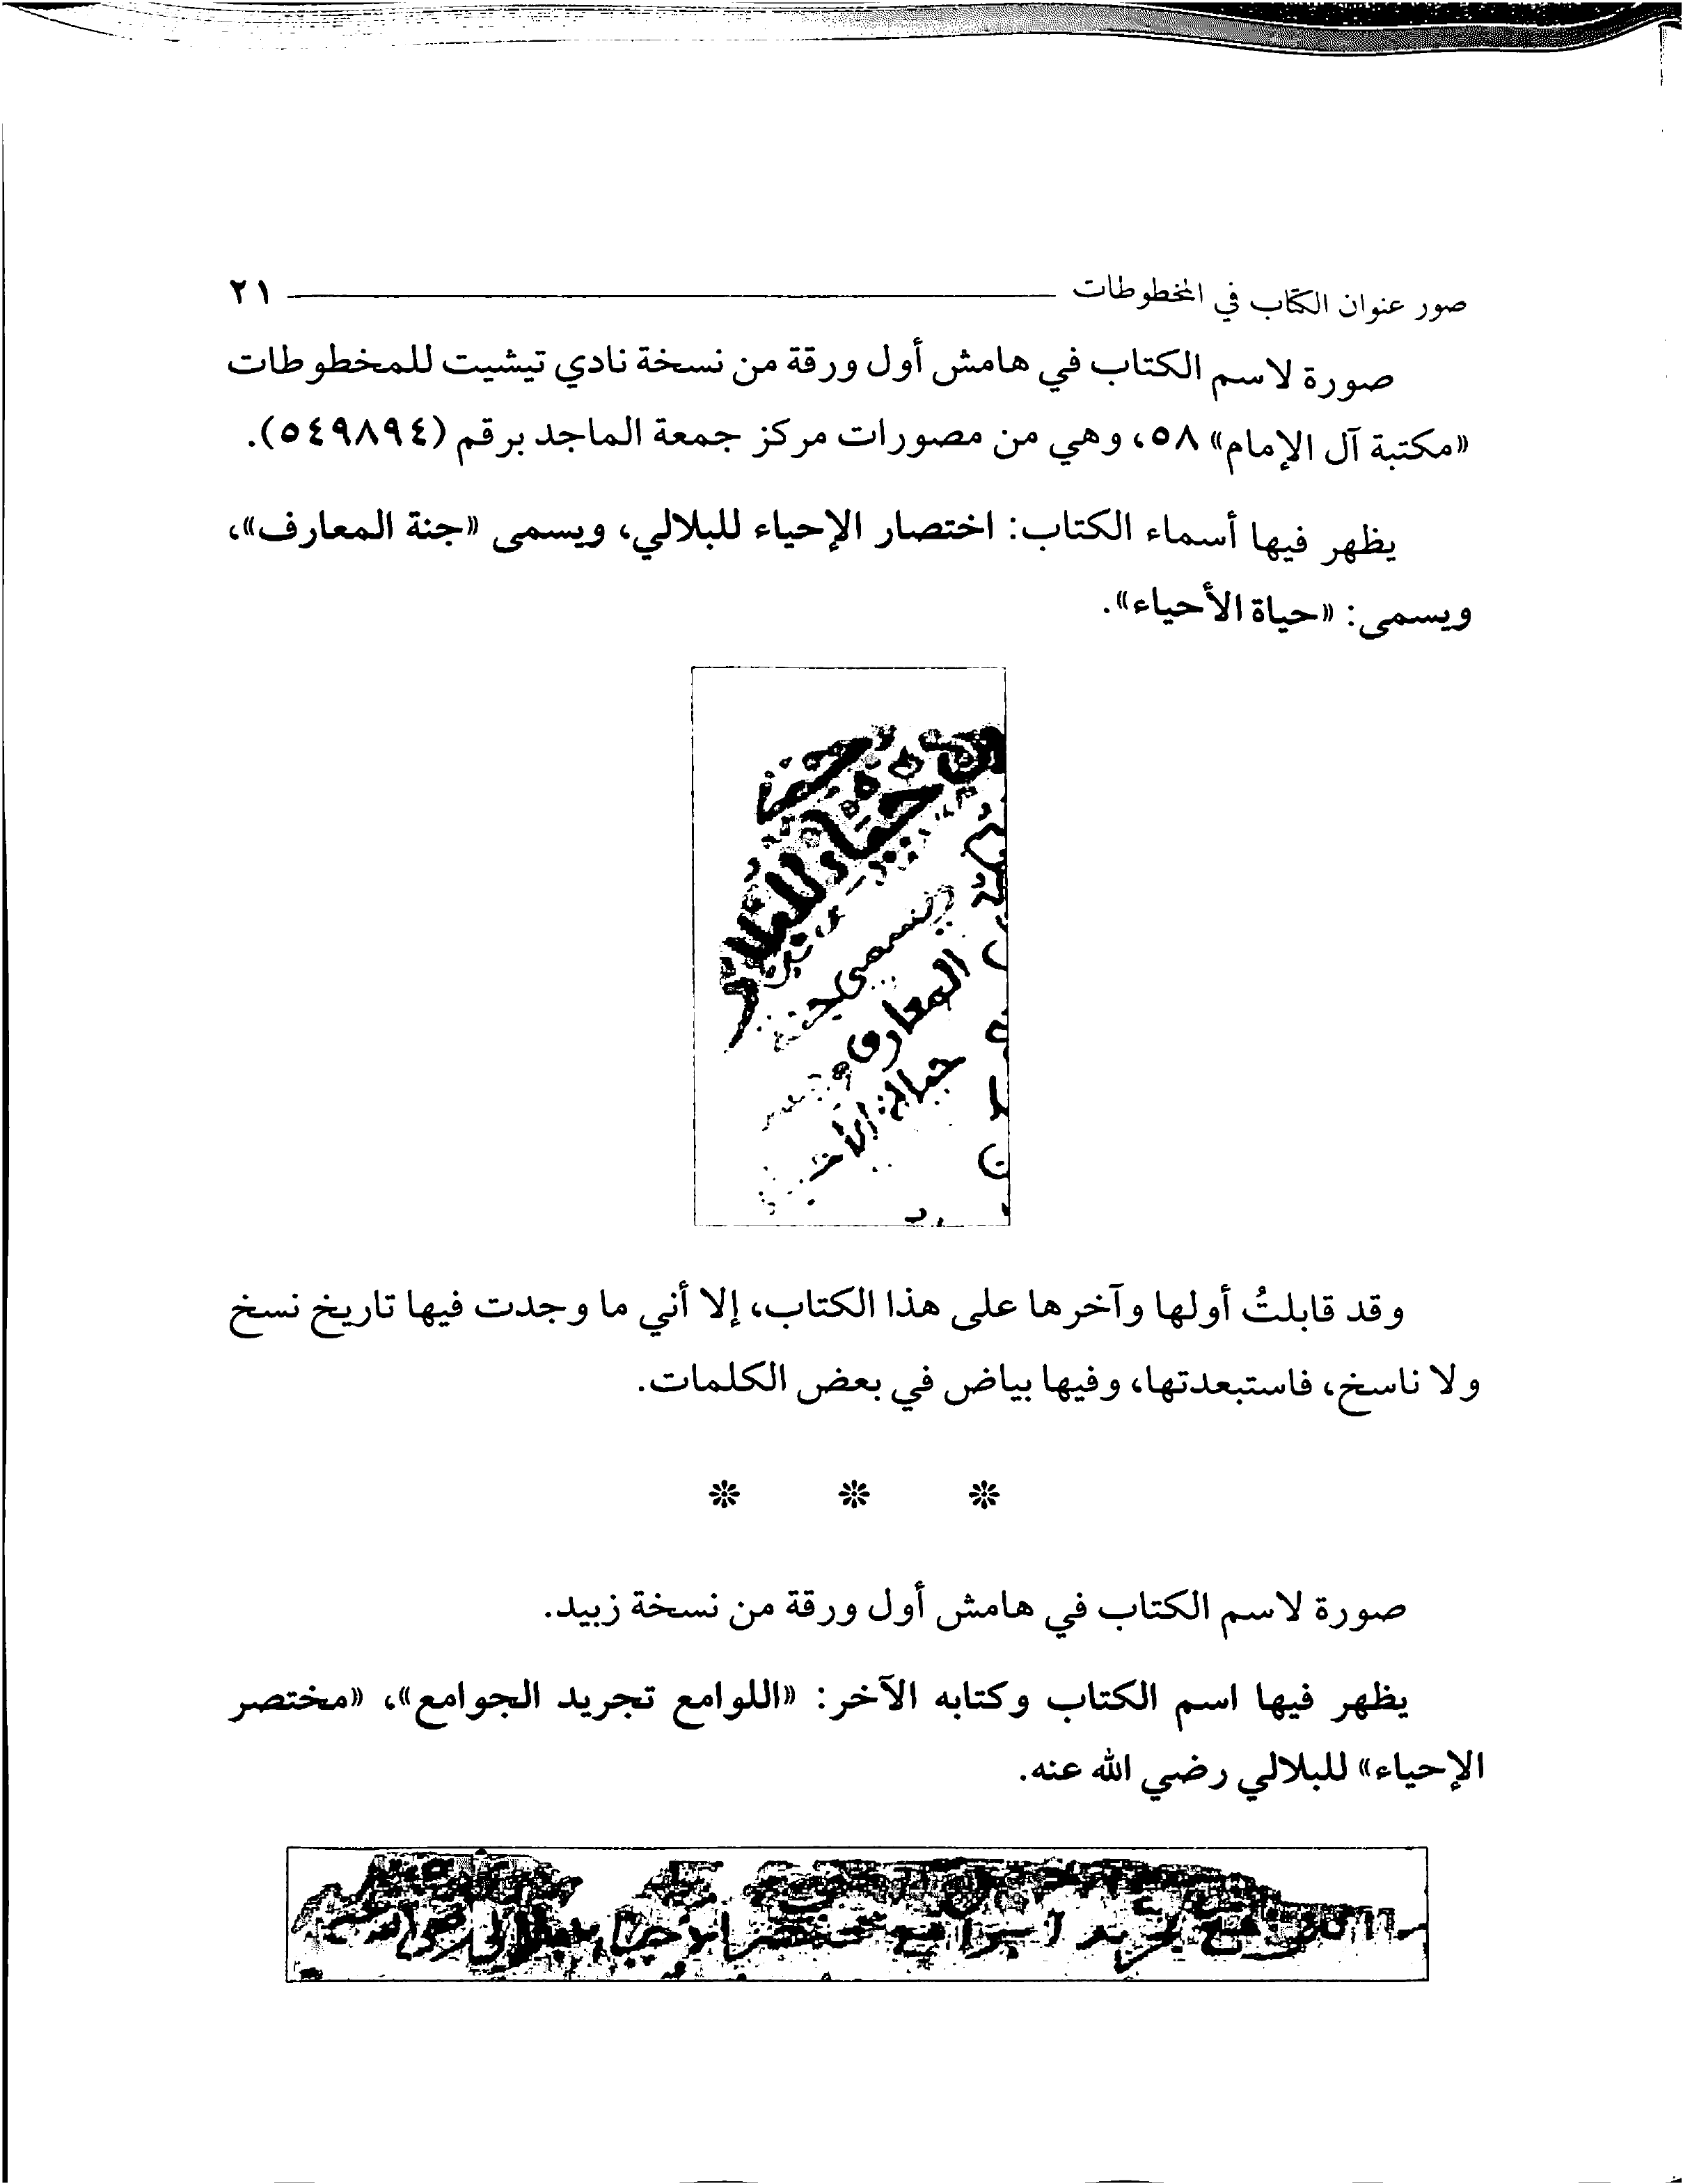 صور عنوان الكتاب في المخطوطات ٢١
صورة لاسم الكتاب في هامش أول ورقة من نسخة نادي تيشيت للمخطوطات
«مكتبة آل الإمام» ٥٨، وهي من مصورات مركز جمعة الماجد برقم (٥٤٩٨٩٤).
يظهر فيها أسماء الكتاب: اختصار الإحياء للبلالي، ويسمى «جنة المعارف»،
ويسمى: «حياة الأحياء».
للبلالي
ويسمى جنة
المعارف
وقد قابلتُ أولها وآخرها على هذا الكتاب، إلا أني ما وجدت فيها تاريخ نسخ
ولا ناسخ، فاستبعدتها، وفيها بياض في بعض الكلمات.
صورة لاسم الكتاب في هامش أول ورقة من نسخة زبيد.
يظهر فيها اسم الكتاب وكتابه الآخر: «اللوامع تجريد الجوامع»، «مختصر
الإحياء» للبلالي رضي الله عنه.